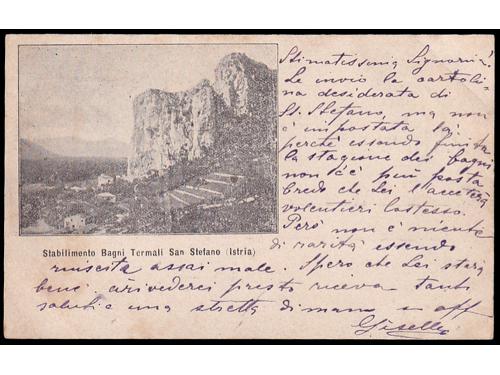 Stimatissima Signorina!
Le invio la cartoli-
na desiderata di
St. Stefano, ma non
è impostata la,
perchè essendo finita
la stagione dei bagni
non c'è più posta
Credo che Lei l'accetterà
volentieri lostesso.
Però non è niente
di rarità essendo
Stabilimento Bagni Termali San Stefano (Istria)
riuscita assai male. Spero che Lei starà
bene, arivederci presto riceva tanti
saluti e una stretta di mano
Gisella